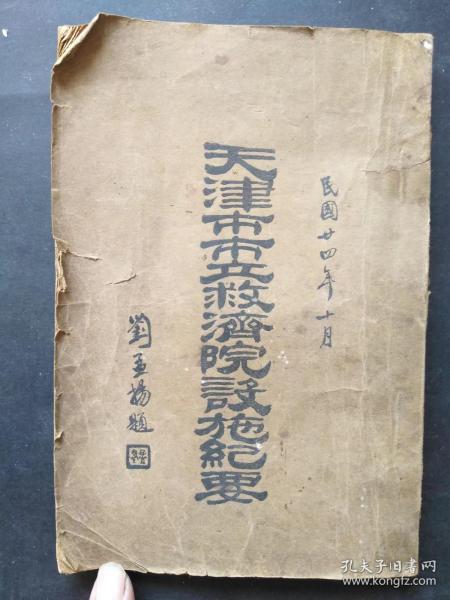 民國廿四年十月
天津市市立救濟院設施紀要
劉孟揚題
孔夫子旧书网
www.kongfz.com